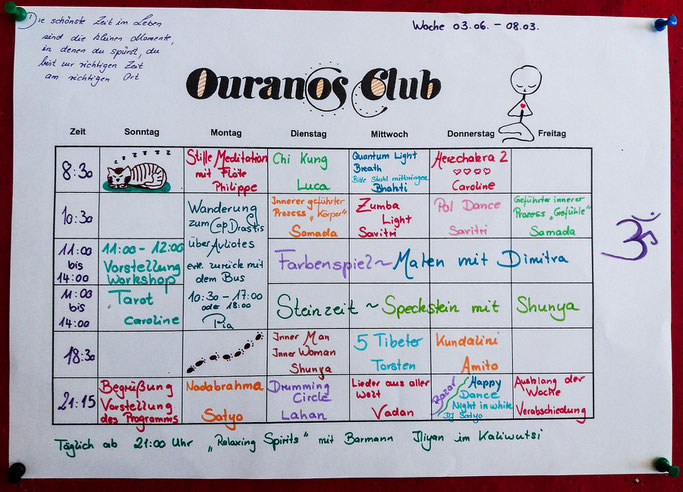 Die schönste Zeit im Leben
sind die kleinen Momente,
in denen du spürst, du
bist zur richtigen Zeit
am richtigen Ort
Woche 03.06. – 08.03.
Ouranos Club
Zeit Sonntag Montag Dienstag Mittwoch Donnerstag Freitag
8:30
z z z z z z z
Stille Meditation
mit Flöte
Philippe
Chi Kung
Luca
Quantum Light
Breath
Bitte Stuhl mitbringen
Bhakti
Herzchakra 2
Caroline
10:30
Wanderung
zum Cap Drastis
über Avliotes
evt. zurück mit
dem Bus
10:30 – 17:00
oder 18:00
Pia
Innerer geführter
Prozess „Körper"
Samada
Zumba
Light
Savitri
Pol Dance
Savitri
Geführter innerer
Prozess „Gefühle"
Samada
11:00
bis
14:00
11:00 – 12:00
Vorstellung
Workshop
Farbenspiel ~ Malen mit Dimitra
11:00
bis
14:00
Tarot
Caroline
Steinzeit ~ Speckstein mit Shunya
18:30
Inner Man
Inner Woman
Shunya
5 Tibeter
Torsten
Kundalini
Amito
21:15
Begrüßung
Vorstellung
des Programms
Nadabrahma
Satyo
Drumming
Circle
Lahan
Lieder aus aller
Welt
Vadan
Bazar
Happy
Dance
Night in white
DJ Satyo
Ausklang der
Woche
Verabschiedung
ॐ
Täglich ab 21:00 Uhr „Relaxing Spirits" mit Barmann Iliyan im Kaliwutsi